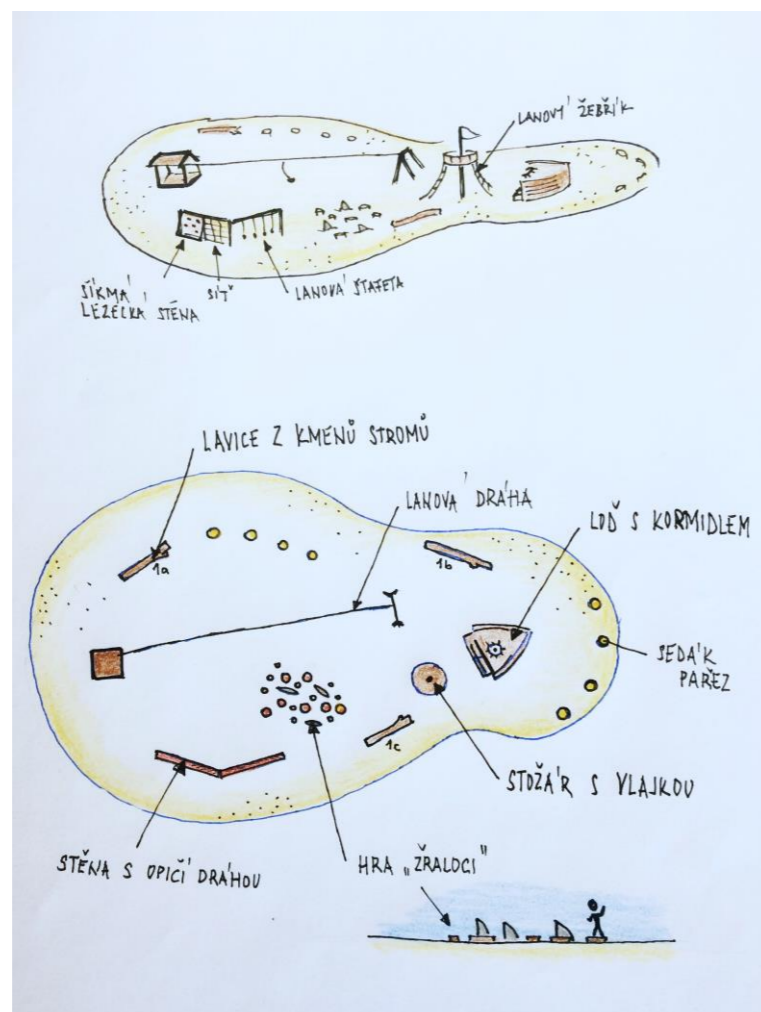 LANOVÝ ŽEBŘÍK
ŠIKMÁ
LEZECKÁ STĚNA
SÍŤ
LANOVÁ ŠTAFETA
LAVICE Z KMENŮ STROMŮ
LANOVÁ DRÁHA
LOĎ S KORMIDLEM
1a
1b
SEDÁK
PAŘEZ
1c
STOŽÁR S VLAJKOU
STĚNA S OPIČÍ DRÁHOU
HRA „ŽRALOCI"